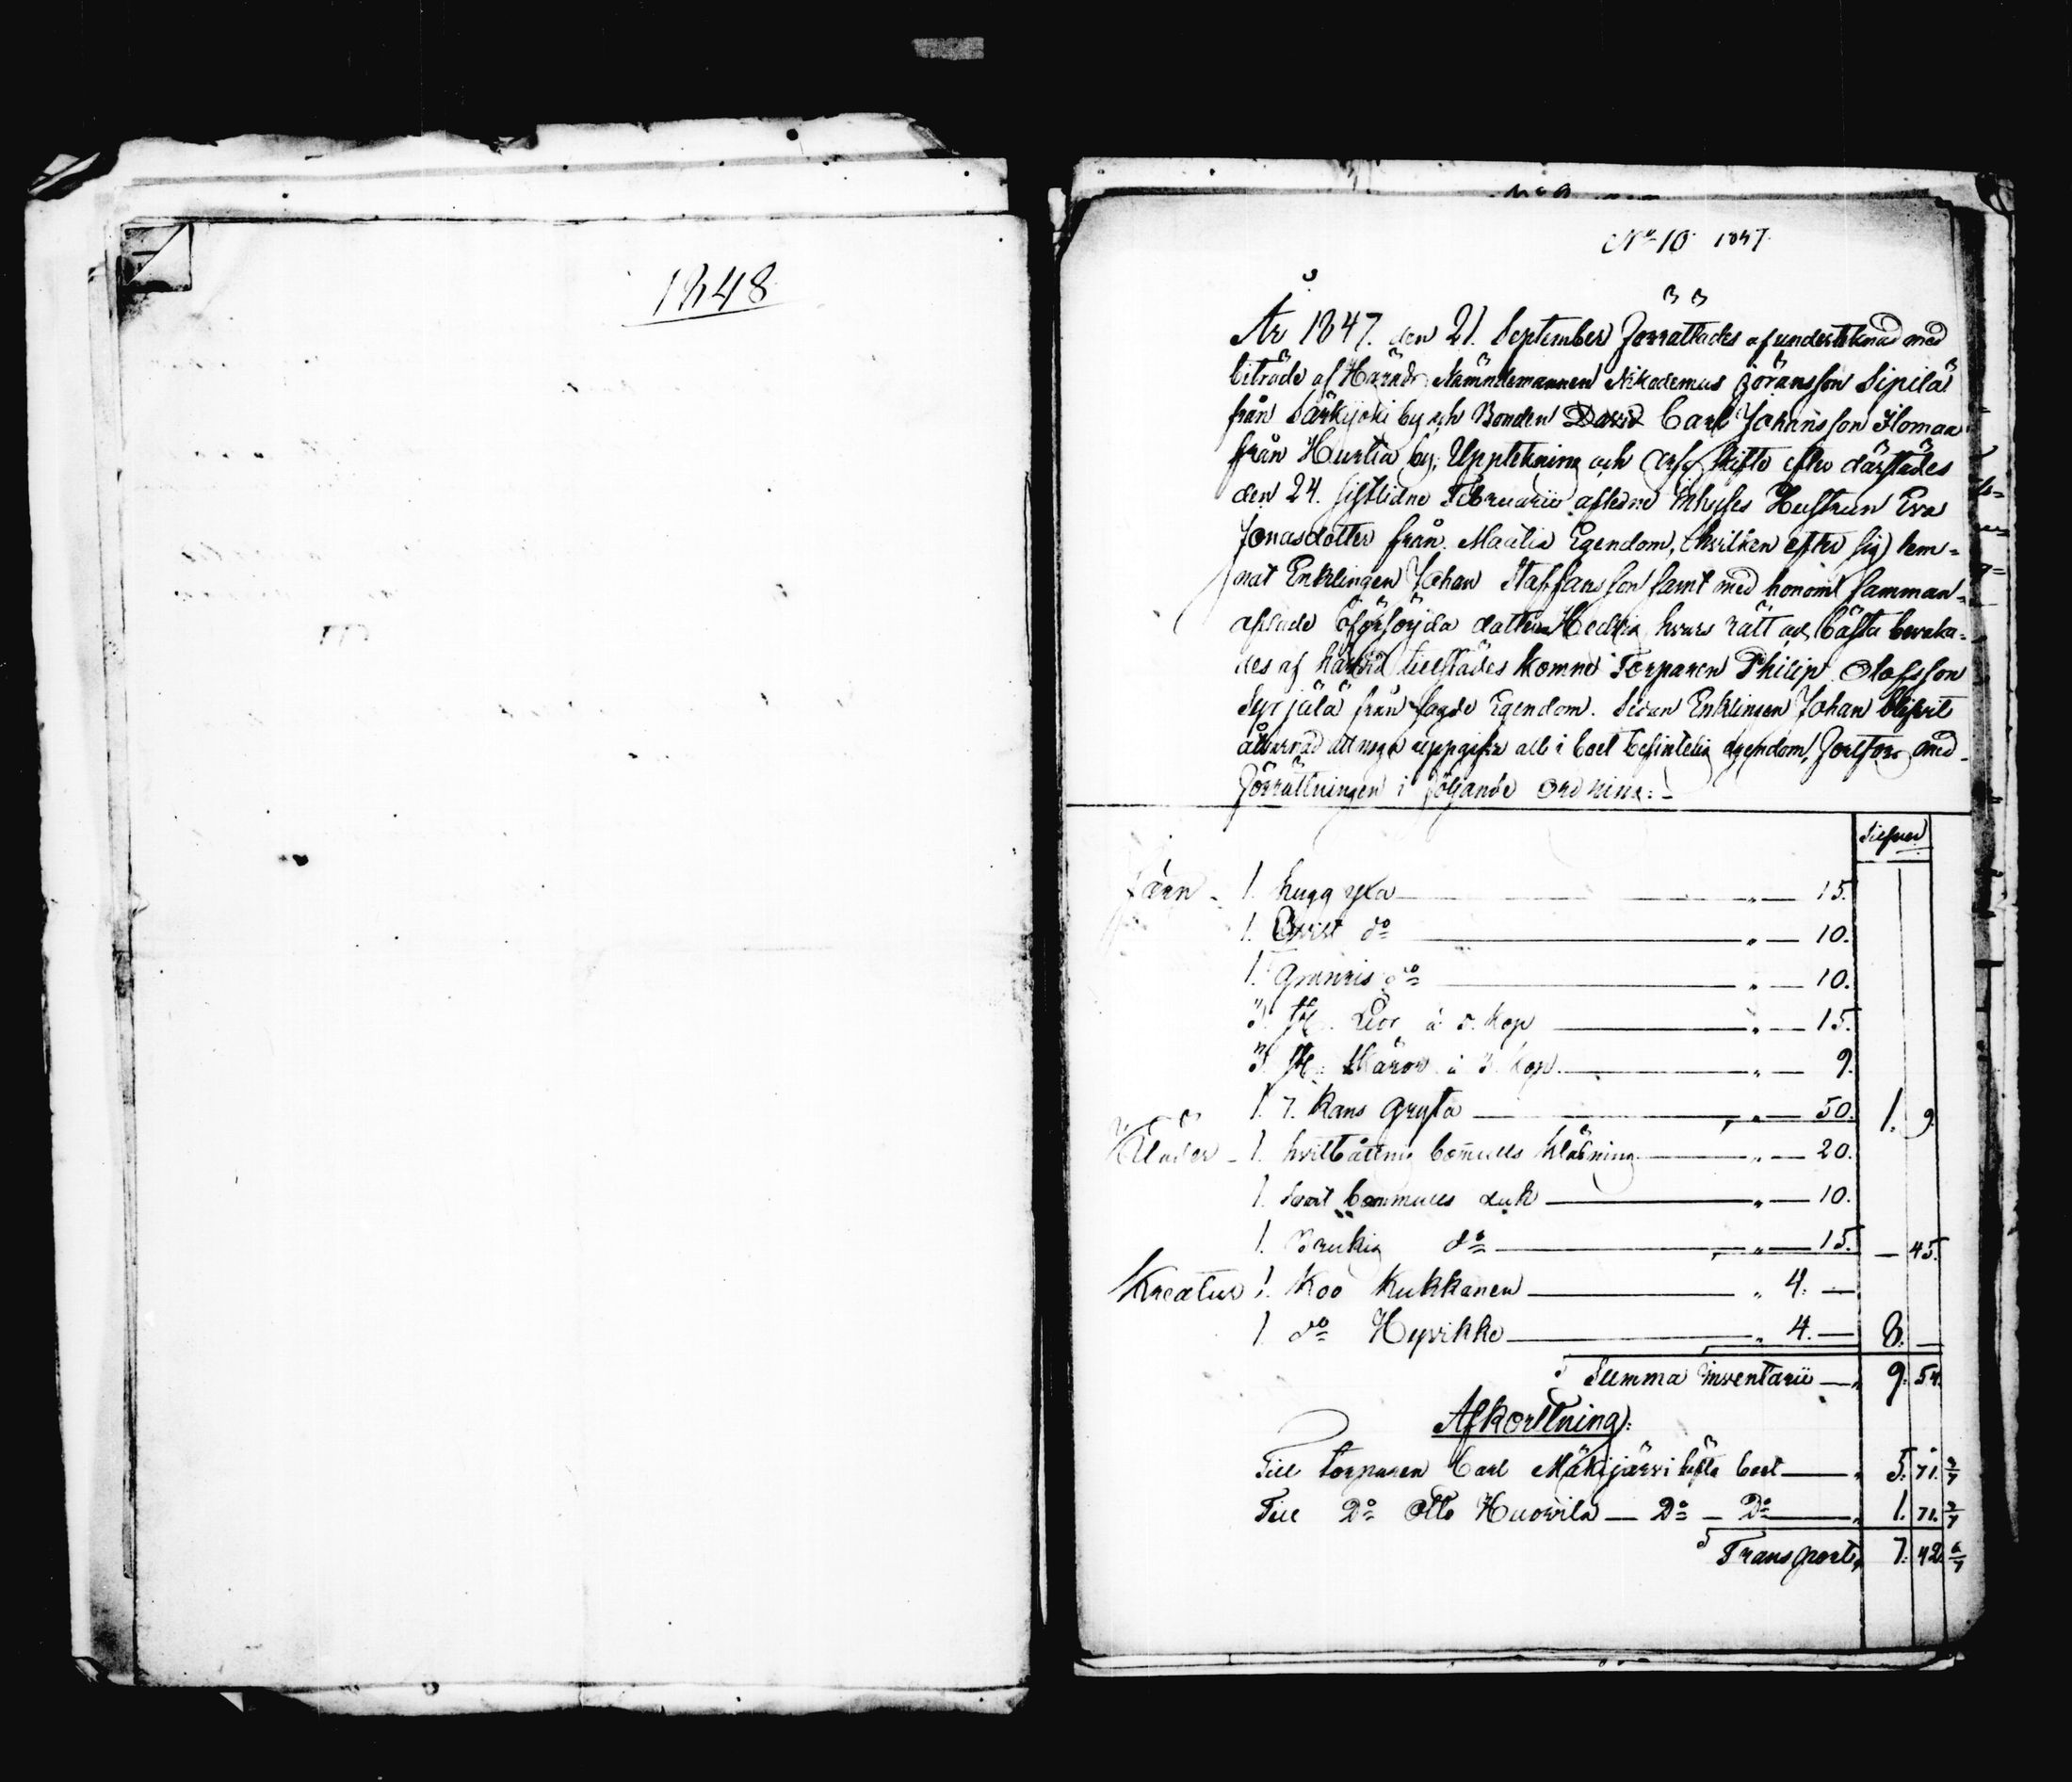 1848
No 10 1847.
År 1847. den 21. September Förrattades af underteknad med
biträde af Härads Nämndemannen Nikodemus Jöransson Sipilä
från Särkijoki by och Bonden David Carl Johansson Ilomaa
från Hurtia by, Uppteknina och Arfskifte efter därstädes
den 24. sistlidne Februarii afledne Inhyses Hustrun Eva
Jonasdotter från Maatia Egendom, hvilken efter sig lem-
nat Enklingen Johan Staffansson samt med honom samman-
aflade oförsörjda dottren Hedvig hvars rätt och bästa bevaka-
des af härvid tillstädes komne Torparen Philip Olofsson
Syrjälä från sagde Egendom. Sedan Enklingen Johan blifvit
åtvarnad att noga uppgifva allt i boet befintelig egendom, Fortfors med
Förrättningen i följande Ordning:
Silfver
Järn - 1. hugg yxa " — 15.
1. Qvist do " — 10.
1. Granris do " — 10.
3. St. Lior á 5. kop " — 15.
3. St. Skäror á 3. kop. " — 9.
1. 7. kans gryta " — 50. 1. 9.
Kläder - 1. hvitbåtnig bomulls klädning " — 20.
1. Svart bommulls duk " — 10.
1. Brukig do " — 15. — 45.
Kreatur 1. Koo Kukkanen " 4. —
1. do Hyvikke " 4. — 8. —
Summa Inventarii — 9. 54.
Afkortning:
Till torparen Carl Mäkijärvi häfta boet — 5. 71. 3/7
Till Do Otto Huovila — Do — Do — 1. 71. 3/7
Transport 7. 42. 6/7